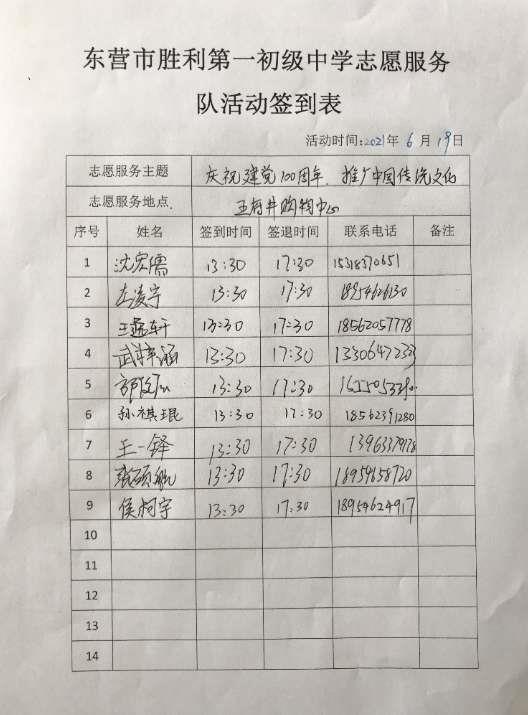 东营市胜利第一初级中学志愿服务
队活动签到表
活动时间:2021年 6 月 19日
志愿服务主题 庆祝建党100周年、推广中国传统文化
志愿服务地点. 王府井购物中心
序号 姓名 签到时间 签退时间 联系电话 备注
1 沈宏儒 13:30 17:30 15318370651
2 13:30 17:30 18954626130
3 13:30 17:30 18562057778
4 武梓涵 13:30 17:30 13306472333
5 13:30 17:30
6 孙祺琨 13:30 17:30 18562391280
7 王一铎 13:30 17:30
8 13:30 17:30 18959658720
9 侯柯宇 13:30 17:30 18954624917
10
11
12
13
14